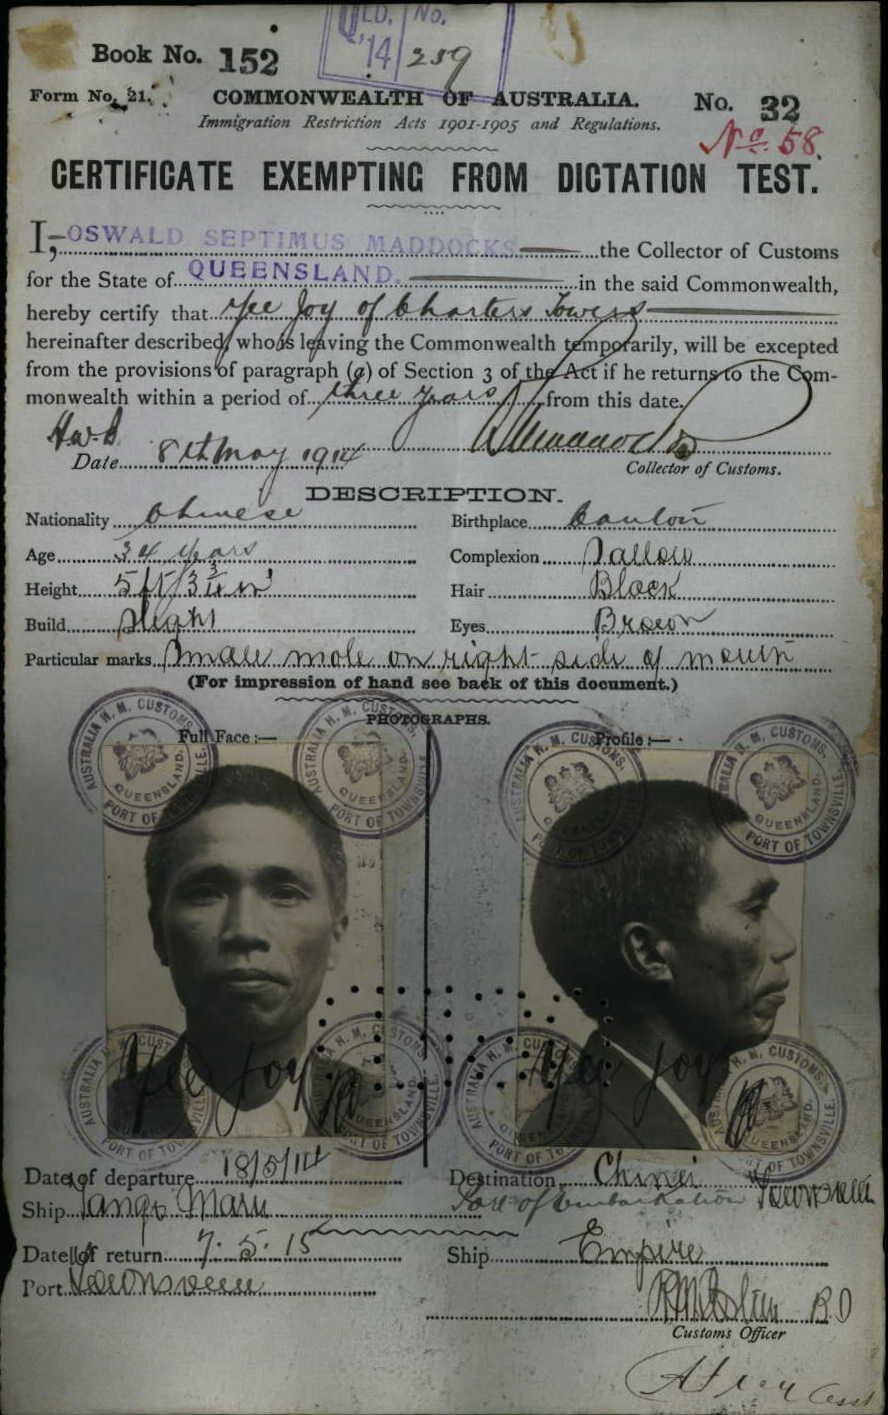 QLD. No.
'14 259
Book No. 152
Form No. 21.
COMMONWEALTH OF AUSTRALIA.
No. 32
Immigration Restriction Acts 1901-1905 and Regulations.
No. 58.
CERTIFICATE EXEMPTING FROM DICTATION TEST.
I, OSWALD SEPTIMUS MADDOCKS the Collector of Customs
for the State of QUEENSLAND. in the said Commonwealth,
hereby certify that Yee Joy of Charters Towers
hereinafter described, who is leaving the Commonwealth temporarily, will be excepted
from the provisions of paragraph (a) of Section 3 of the Act if he returns to the Com-
monwealth within a period of three years from this date.
Date 8th May 1914
Collector of Customs.
DESCRIPTION.
Nationality Chinese Birthplace Canton
Age 34 years Complexion Sallow
Height 5 ft 3 3/4 in Hair Black
Build Slight Eyes Brown
Particular marks Small mole on right side of mouth
(For impression of hand see back of this document.)
PHOTOGRAPHS.
Full Face :— Profile :—
AUSTRALIA H. M. CUSTOMS. QUEENSLAND. PORT OF TOWNSVILLE.
AUSTRALIA H. M. CUSTOMS. QUEENSLAND. PORT OF TOWNSVILLE.
AUSTRALIA H. M. CUSTOMS. QUEENSLAND. PORT OF TOWNSVILLE.
AUSTRALIA H. M. CUSTOMS. QUEENSLAND. PORT OF TOWNSVILLE.
Yee Joy Yee Joy
Date of departure 18/5/14 Destination China
Ship Tango Maru Port of Embarkation Townsville
Date of return 7.5.15 Ship Empire
Port Townsville
Customs Officer